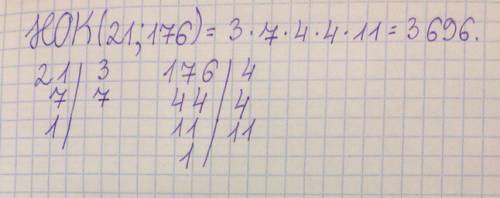 НОК(21;176) = 3·7·4·4·11 = 3696.
21|3 176|4
7|7 44|4
1| 11|11
1|